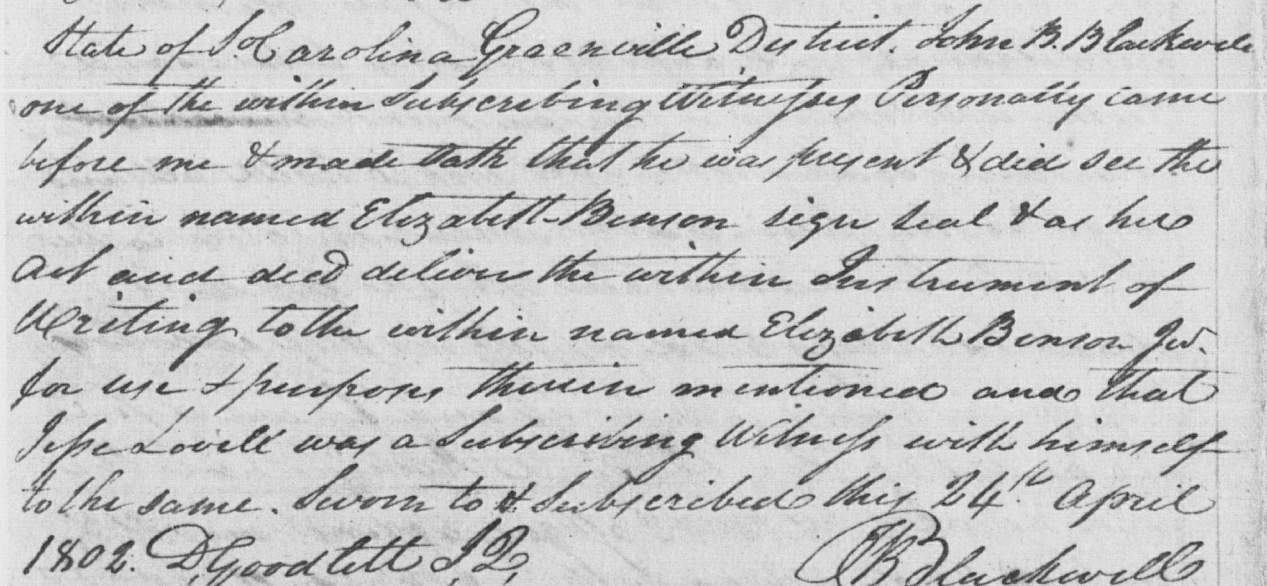 State of So. Carolina Greenville District. John B. Blackwell
one of the within Subscribing Witnesses Personally came
before me & made Oath that he was present & did see the
within named Elizabeth Benson sign seal & as her
Act and deed deliver the within Instrument of
Writing to the within named Elizabeth Benson Jur.
for use & purposes therein mentioned and that
Jesse Lovell was a Subscribing Witness with himself
to the same. Sworn to & Subscribed this 24th April
1802. D. Goodlett J.Q. JB Blackwell